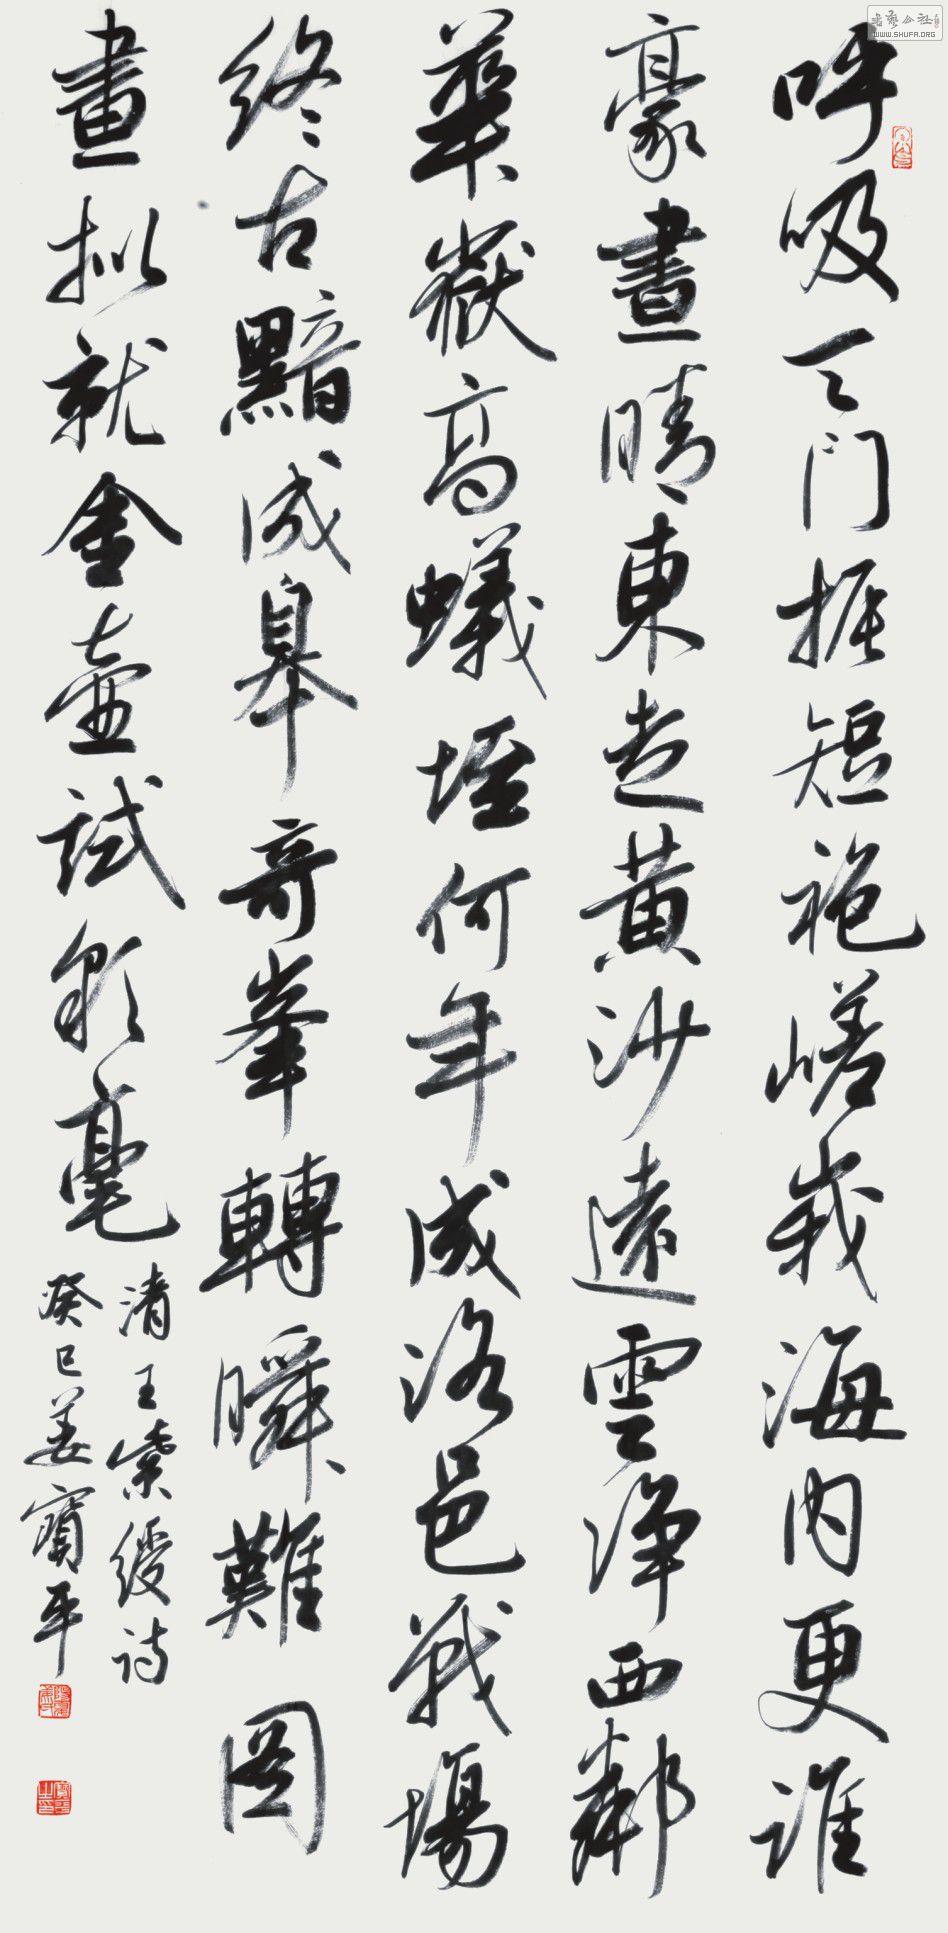 呼吸天門振短袍嵯峩海内更誰
豪晝晴東走黄沙遠雲淨西鄰
華嶽高蟻垤何年成洛邑戰場
終古黯成皋奇峯轉瞬難圖
畫擬就金壺試彩毫
清王紫綬詩
癸巳姜寶平
書藝公社
WWW.SHUFA.ORG